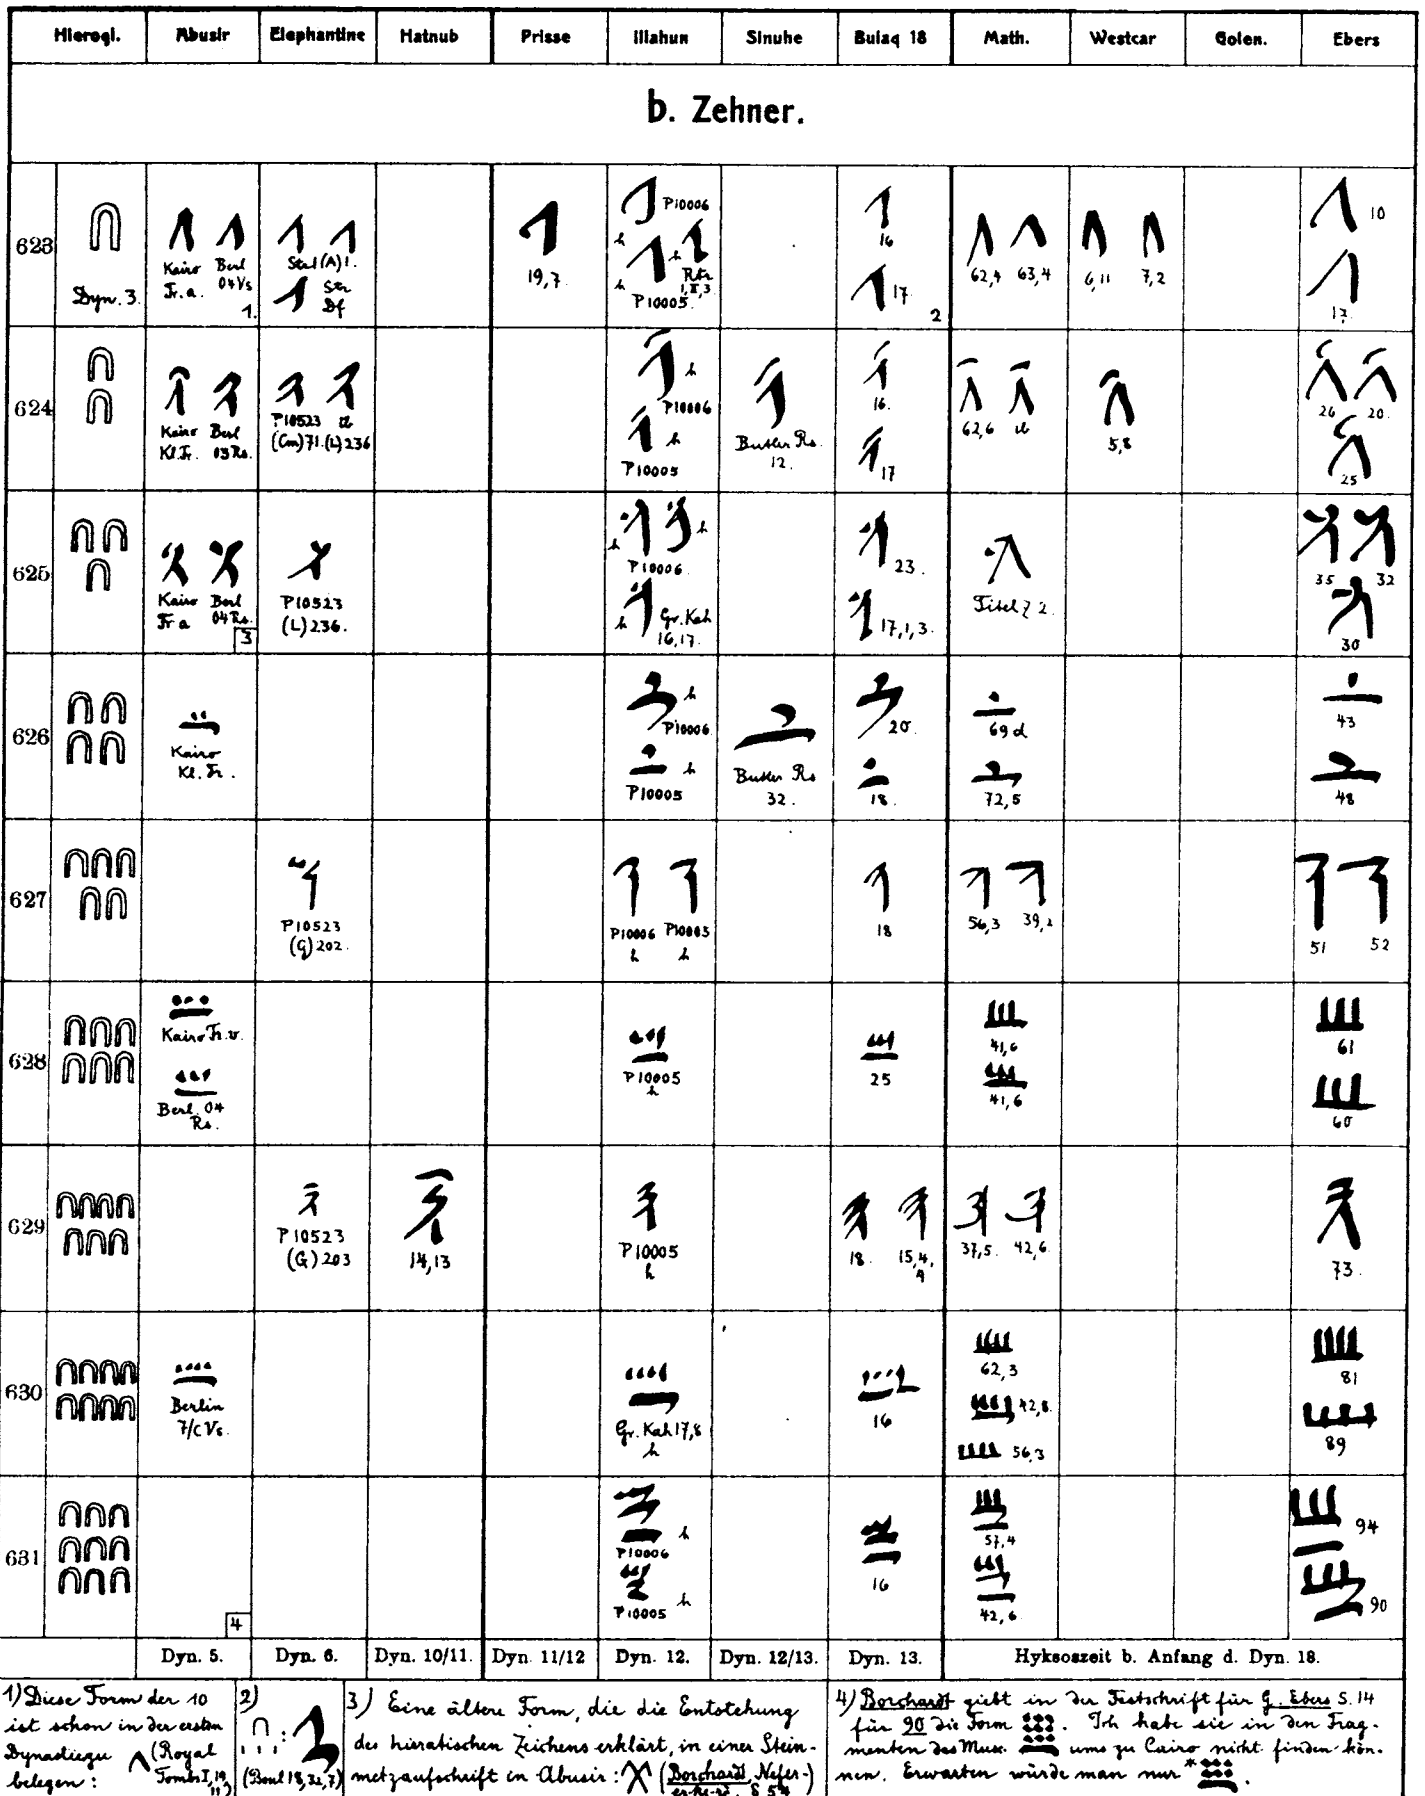 Hierogl. Abusir Elephantine Hatnub Prisse Illahun Sinuhe Bulaq 18 Math. Westcar Golen. Ebers
b. Zehner.
623
Dyn. 3.
Kairo Fr. a. Berl 04 Vs
1.
Str. I (A) 1.
Str Df
19,7.
P10006
h
h
h
Rfr I,II,3
P10005.
16
17
2
62,4 63,4
6,11 7,2
10
17
624
Kairo Kl. Fr. Berl 03 Rs.
P10523 ib
(Cm)71.(L)236
h
P10006
h
P10005
Butler Rs. 12.
16.
17
62,6 ib
5,8
26 20.
25
625
Kairo Fr a Berl 04 Rs.
3
P10523
(L)236.
h
h
P10006.
h
Gr. Kah 16,17.
23.
17,1,3.
Titel Z 2.
35 32
30
626
Kairo
Kl. Fr.
h
P10006
h
P10005
Butler Rs
32.
20.
18.
69 d
72,5
43
48
627
P10523
(G)202.
P10006 P10005
h h
18
56,3 39,2
51 52
628
Kairo Fr. v.
Berl. 04
Rs.
P10005
h
25
41,6
41,6
61
60
629
P10523
(G)203
14,13
P10005
h
18. 15,4,
37,5. 42,6.
73.
630
Berlin
7/c Vs.
Gr. Kah 17,8
h
16
62,3
42,8.
56,3
81
89
631
4
h
P10006
h
P10005
16
57,4
42,6
94
90
Dyn. 5. Dyn. 6. Dyn. 10/11. Dyn. 11/12 Dyn. 12. Dyn. 12/13. Dyn. 13. Hyksoszeit b. Anfang d. Dyn. 18.
1) Diese Form der 10
ist schon in der ersten
Dynastie zu
belegen: (Royal
Tombs I, 19,
2)
(Boul 18, 32, 7)
3) Eine ältere Form, die die Entstehung
des hieratischen Zeichens erklärt, in einer Stein-
metzaufschrift in Abusir: (Borchardt, Nefer-
er-ke-re, S 54
4) Borchardt giebt in der Festschrift für G. Ebers S. 14
für 90 die Form . Ich habe sie in den Frag-
menten des Museums zu Cairo nicht finden kön-
nen. Erwarten würde man nur *